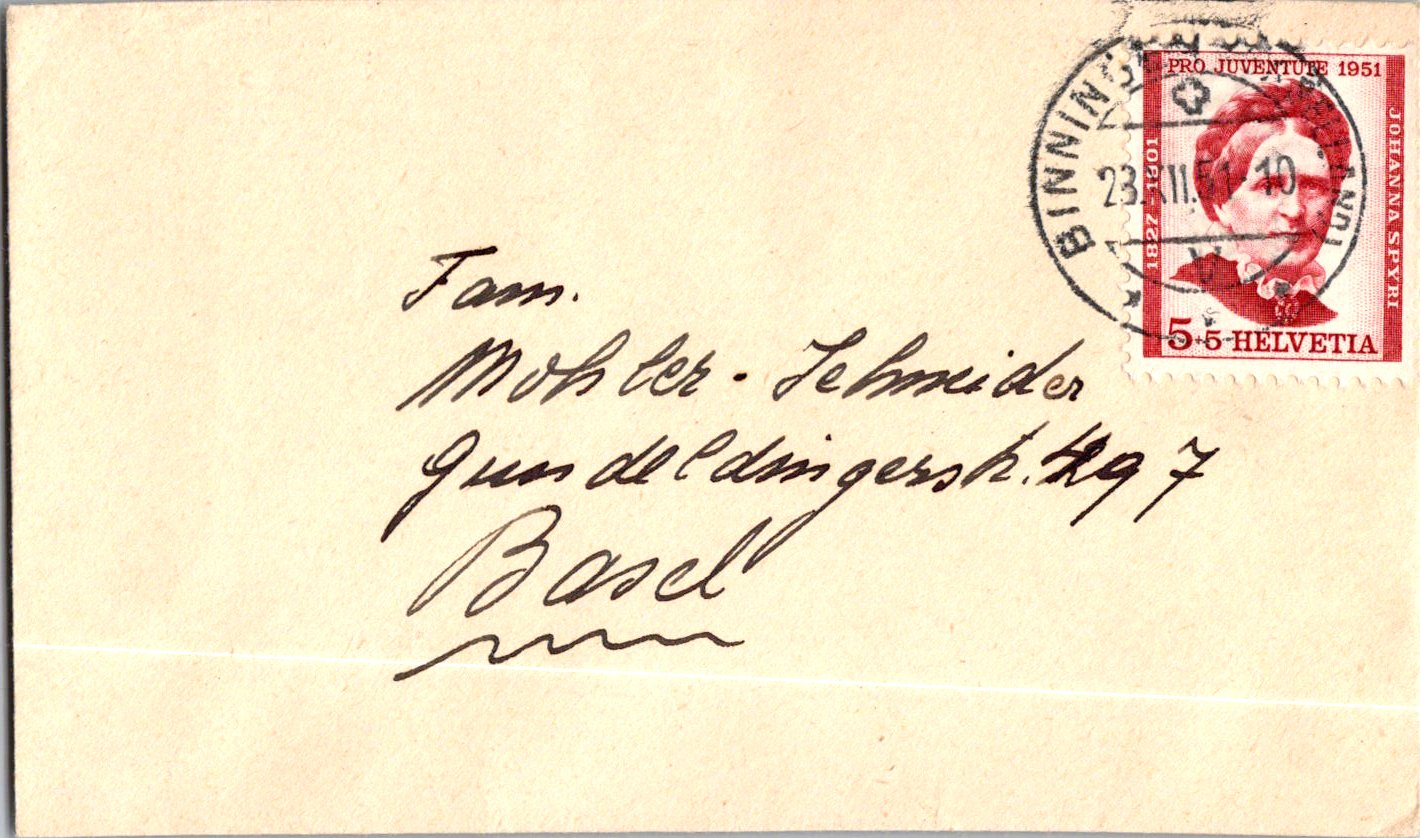 PRO JUVENTUTE 1951
JOHANNA SPYRI
1827-1901
5+5 HELVETIA
BINNINGEN
23.XII.51 10
Fam.
Mohler-Schneider
Gundeldingerstr. 7
Basel